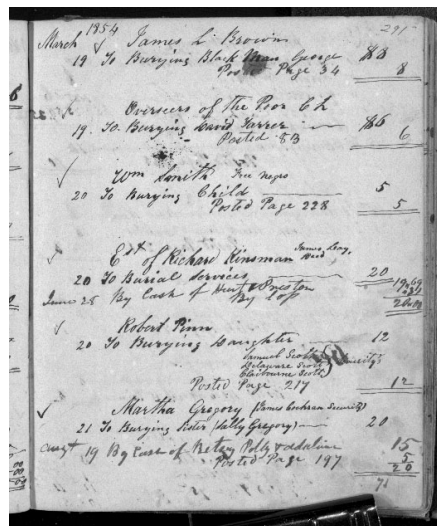 1854 291
March James L. Brown
19 To Burying Black Man George $8
Posted Page 34 8
Overseers of the Poor Ch
19. To Burying David Farrer $6
Posted 8B 6
Wm Smith Free negro
20 To Burying Child 5
Posted Page 228 5
Est of Richard Kinsman James, Leag,
20 To Burial Services 20
June 25 By Cash of Hunt & Preston 19.69
By Loss
20.00
Robert Pinn
20 To Burying Daughter 12
Samuel Scott
Delaware Scott
Claibourne Scott
Posted Page 217 12
Martha Gregory (James Cochran Security)
21 To Burying Sister (Sally Gregory) 20
Augt 19 By Cash of Betsy Polly & Adaline 15
5
Posted Page 197 20
71